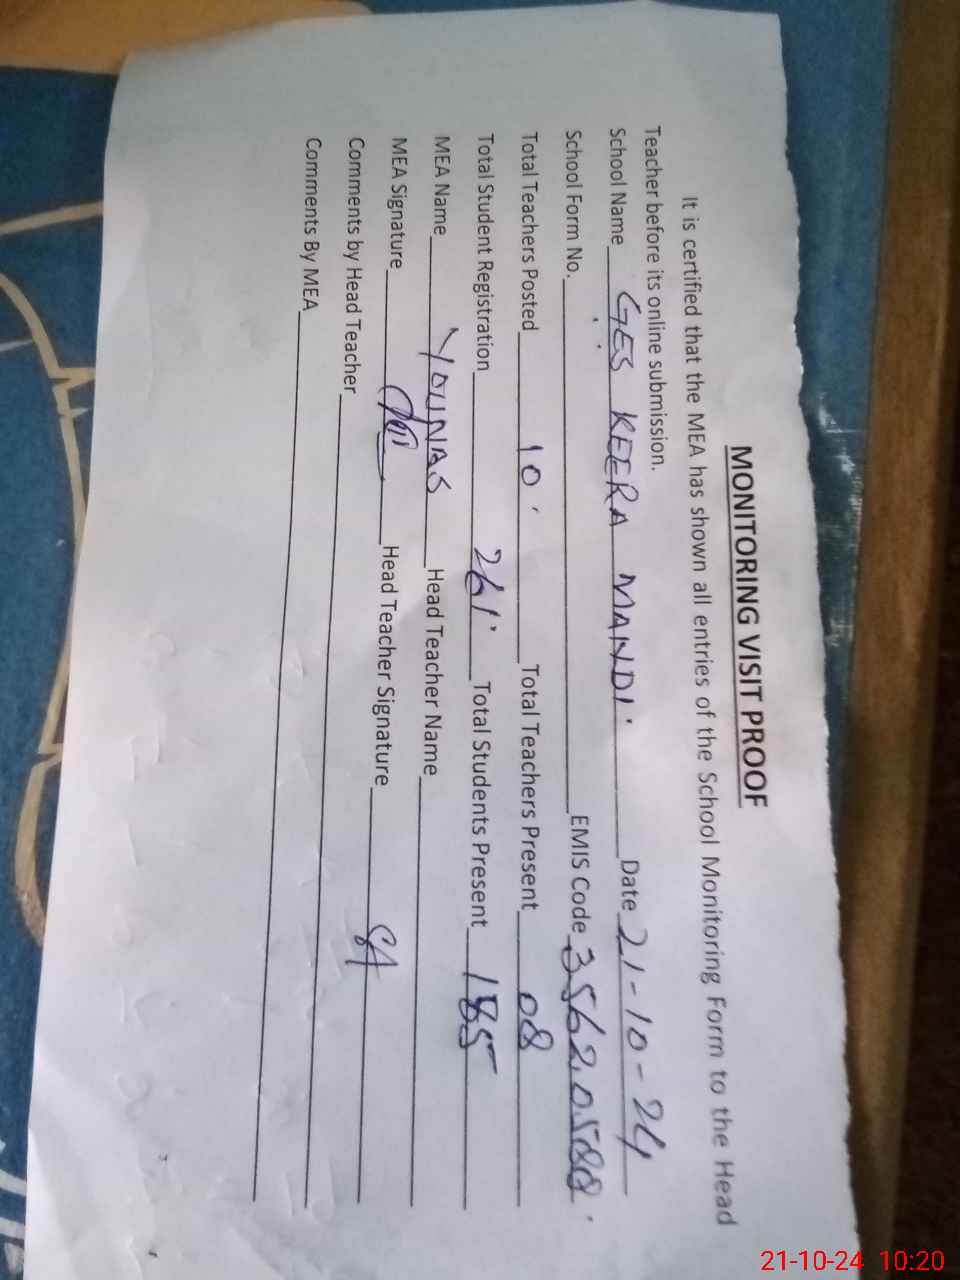 MONITORING VISIT PROOF
It is certified that the MEA has shown all entries of the School Monitoring Form to the Head
Teacher before its online submission.
School Name GES KEERA MANDI Date 21-10-24
School Form No. EMIS Code 35620588
Total Teachers Posted 10 Total Teachers Present 08
Total Student Registration 261 Total Students Present 185
MEA Name YOUNAS Head Teacher Name
MEA Signature Head Teacher Signature
Comments by Head Teacher
Comments By MEA
21-10-24 10:20